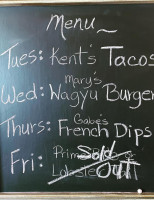 Menu~
Tues: Kent's Tacos
Mary's
Wed: Wagyu Burger
Gabe's
Thurs: French Dips
Fri: Prime
Lobster
Sold
Out